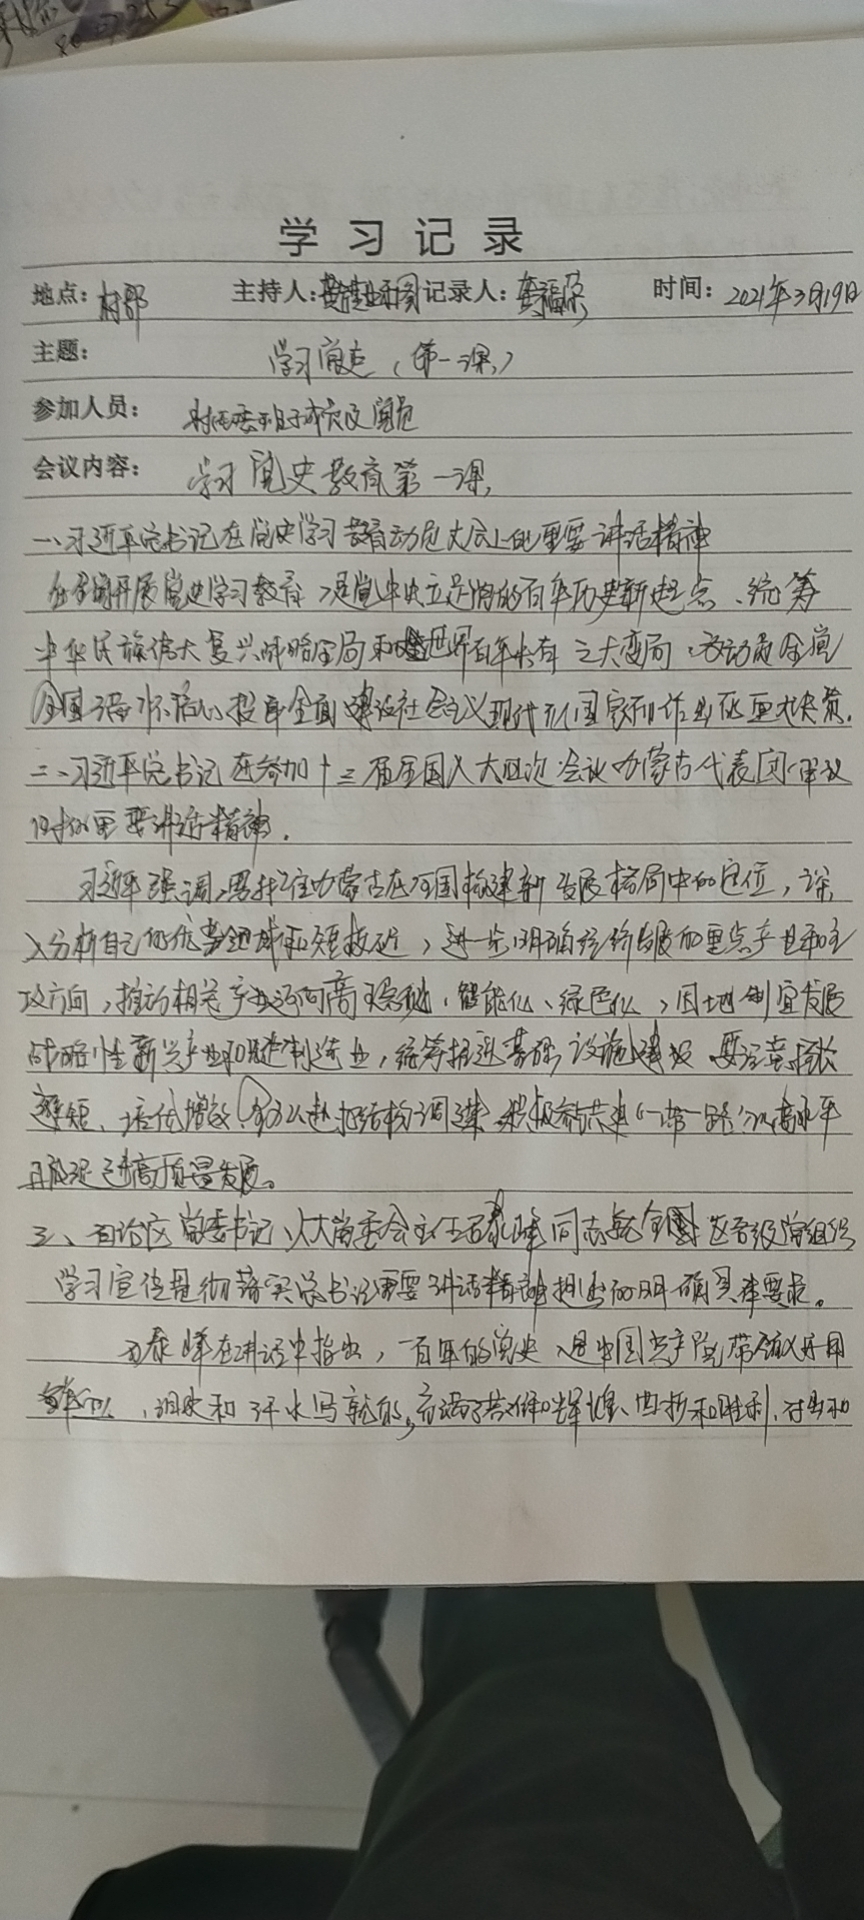 学习记录
地点：村部 主持人： 记录人：龚福 时间：2021年3月19日
主题： 学习党史（第一课）
参加人员： 村两委班子成员及党员
会议内容： 学习党史教育第一课，
一、习近平总书记在党史学习教育动员大会上的重要讲话精神
在全国开展党史学习教育，是党中央立足党的百年历史新起点、统筹
中华民族伟大复兴战略全局和世界百年未有之大变局，为动员全党
全国 信心投身全面建设社会主义现代化国家而作出的重大决策。
二、习近平总书记在参加十三届全国人大四次会议内蒙古代表团审议
时的重要讲话精神。
习近平强调，要找准内蒙古在全国构建新发展格局中的定位，深
入分析自己的优势领域和短板 ，进一步明确经济发展的重点产业和主
攻方向，推动相关产业迈向高端化、智能化、绿色化，因地制宜发展
战略性新兴产业和先进制造业，统筹推进基础设施建设 要注意扬长
避短、培优增效，全力以赴把结构调 积极参与共建“一带一路”以高水平
开放促进高质量发展。
三、自治区党委书记、人大常委会主任石泰峰同志就全 区各级党组织
学习宣传贯彻落实总书记重要讲话精神提出的明确具体要求。
石泰峰在讲话中指出，一百年的党史，是中国共产党带领人民用
鲜血、泪水和汗水写就的，充满了苦难和辉煌、曲折和胜利、付出和